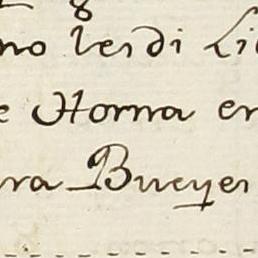 no vesdi Li
e Horna en
ra Bueyes